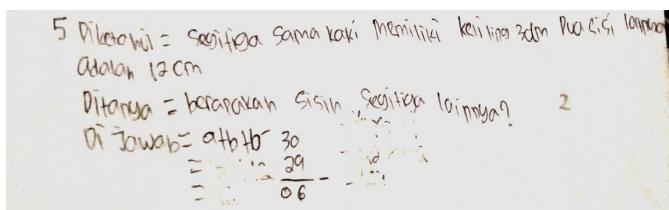 5 Diketahui = Segitiga sama kaki memiliki keliling 3dm Dua sisi lainnya
adalah 12 cm
Ditanya = berapakah sisih segitiga lainnya? 2
Di Jawab = a+b+b 30
= 24
= 06 -